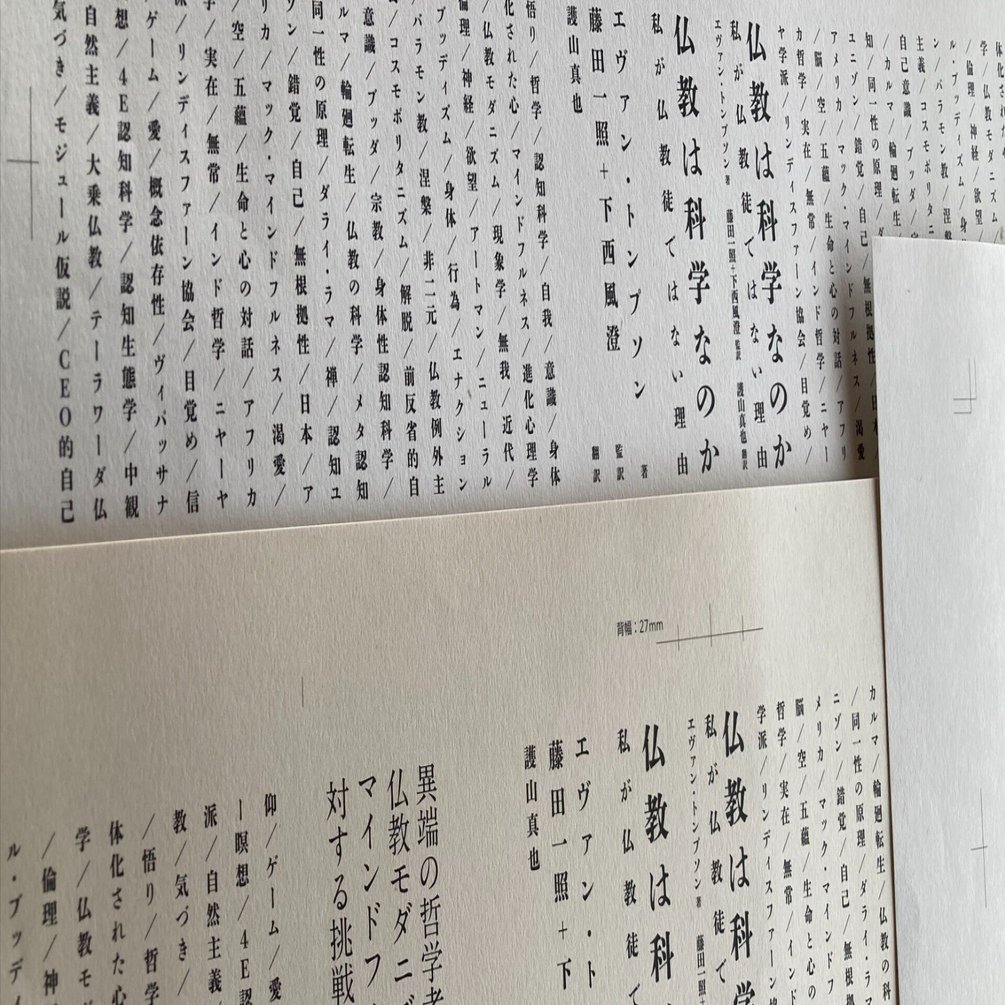 体化され
学／仏教モダニ
／倫理／神経／欲望
ル・ブッディズム／身
ン／バラモン教／涅槃
主義／コスモポリタニ
自己意識／ブッダ／
／カルマ／輪廻転生
知／同一性の原理／ダ
ユニゾン／錯覚／自己／無根拠性／日本／
アメリカ／マック・マインドフルネス／渇愛
／脳／空／五蘊／生命と心の対話／アフリ
カ哲学／実在／無常／インド哲学／ニヤー
ヤ学派／リンディスファーン協会／目覚め／
仏教は科学なのか
私が仏教徒ではない理由
エヴァン・トンプソン 著 藤田一照＋下西風澄 監訳 護山真也 翻訳
仏教は科学なのか
私が仏教徒ではない理由
エヴァン・トンプソン 著
藤田一照＋下西風澄 監訳
護山真也 翻訳
悟り／哲学／認知科学／自我／意識／身体
化された心／マインドフルネス／進化心理学
／仏教モダニズム／現象学／無我／近代／
倫理／神経／欲望／アートマン／ニューラル
・ブッディズム／身体／行為／エナクション
／バラモン教／涅槃／非二元／仏教例外主
／コスモポリタニズム／解脱／前反省的自
意識／ブッダ／宗教／身体性認知科学
ルマ／輪廻転生／仏教の科学／メタ認知
同一性の原理／ダライ・ラマ／禅／認知ユ
ゾン／錯覚／自己／無根拠性／日本／ア
リカ／マック・マインドフルネス／渇愛／
／空／五蘊／生命と心の対話／アフリカ
学／実在／無常／インド哲学／ニヤーヤ
派／リンディスファーン協会／目覚め／信
ゲーム／愛／概念依存性／ヴィパッサナ
想／4E認知科学／認知生態学／中観
自然主義／大乗仏教／テーラワーダ仏
気づき／モジュール仮説／CEO的自己
背幅：27mm
カルマ／輪廻転生／仏教の科
／同一性の原理／ダライ・ラ
ニゾン／錯覚／自己／無根
メリカ／マック・マインドフ
脳／空／五蘊／生命と心の
哲学／実在／無常／インド
学派／リンディスファーン協
仏教は科学
私が仏教徒で
エヴァン・トンプソン 著 藤田一照＋下
仏教は科
私が仏教徒で
エヴァン・ト
藤田一照＋下
護山真也
異端の哲学者
仏教モダニズ
マインドフ
対する挑戦
仰／ゲーム／愛
ー瞑想／4E認
派／自然主義／
教／気づき／
／悟り／哲学
体化された心
学／仏教モ
／倫理／神
ル・ブッデ